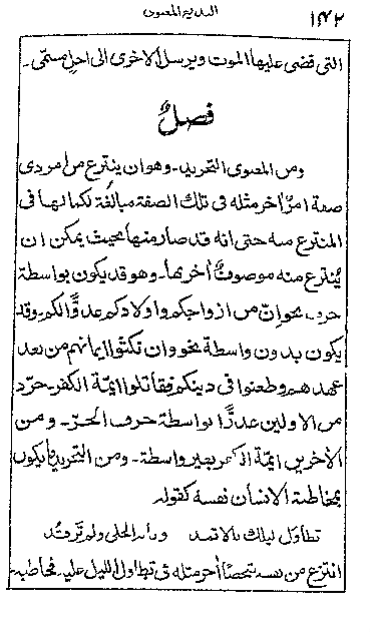 البديع المعنوي ١٤٢
التى قضى عليها الموت ويرسل الاخرى الى اجل مسمّى۔
فصلٌ
ومن المعنوى التجريد۔ وهو ان ينتزع من امر ذى
صفة امرٌ اٰخر مثله فى تلك الصفة مبالغة لكمالها فى
المنتزع منه حتى انه قد صار منها بحيث يمكن ان
يُنتزع منه موصوفٌ اٰخر بها۔ وهو قد يكون بواسطة
حرف نحو انّ من ازواجكم واولادكم عدوًّا لكم۔ وقد
يكون بدون واسطة نحو وان نكثوا ايمانهم من بعد
عهدهم وطعنوا فى دينكم فقاتلوا ائمّة الكفر۔ جرّد
من الاولين عدوًّا بواسطة حرف الجرّ۔ ومن
الاٰخرين ائمّة الكفر بغير واسطة۔ ومن التجريد ما يكون
بمخاطبة الانسان نفسه كقوله
تطاول ليلك بالاثمد ونام الخلى ولم تَرقُد
انتزع من نفسه شخصًا اٰخر مثله فى تطاول الليل عليه۔ فخاطبه۔